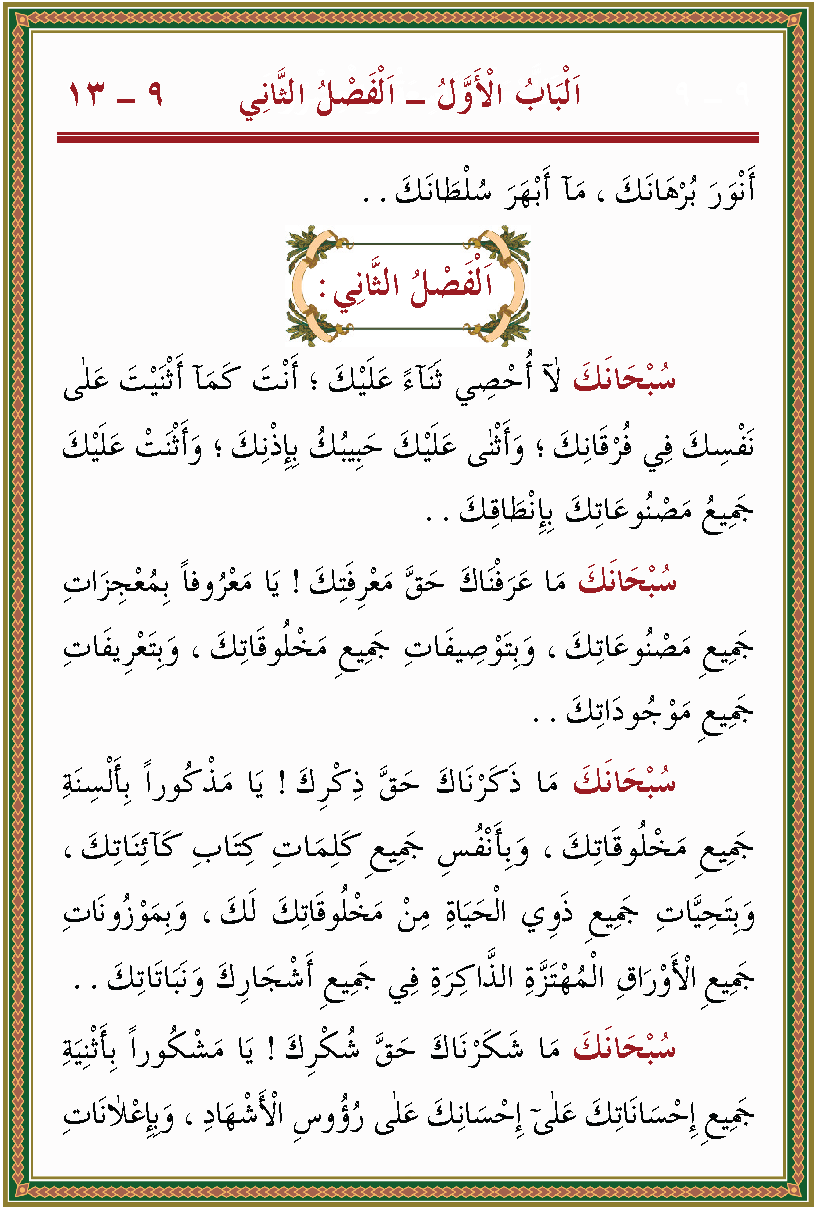 اَلْبَابُ الْأَوَّلُ – اَلْفَصْلُ الثَّانِي ٩ – ١٣
أَنْوَرَ بُرْهَانَكَ ، مَآ أَبْهَرَ سُلْطَانَكَ . .
اَلْفَصْلُ الثَّانِي :
سُبْحَانَكَ لَآ أُحْصِي ثَنَآءً عَلَيْكَ ؛ أَنْتَ كَمَآ أَثْنَيْتَ عَلٰى
نَفْسِكَ فِي فُرْقَانِكَ ؛ وَأَثْنٰى عَلَيْكَ حَبِيبُكُ بِإِذْنِكَ ؛ وَأَثْنَتْ عَلَيْكَ
جَمِيعُ مَصْنُوعَاتِكَ بِإِنْطَاقِكَ . .
سُبْحَانَكَ مَا عَرَفْنَاكَ حَقَّ مَعْرِفَتِكَ ! يَا مَعْرُوفاً بِمُعْجِزَاتِ
جَمِيعِ مَصْنُوعَاتِكَ ، وَبِتَوْصِيفَاتِ جَمِيعِ مَخْلُوقَاتِكَ ، وَبِتَعْرِيفَاتِ
جَمِيعِ مَوْجُودَاتِكَ . .
سُبْحَانَكَ مَا ذَكَرْنَاكَ حَقَّ ذِكْرِكَ ! يَا مَذْكُوراً بِأَلْسِنَةِ
جَمِيعِ مَخْلُوقَاتِكَ ، وَبِأَنْفُسِ جَمِيعِ كَلِمَاتِ كِتَابِ كَآئِنَاتِكَ ،
وَبِتَحِيَّاتِ جَمِيعِ ذَوِي الْحَيَاةِ مِنْ مَخْلُوقَاتِكَ لَكَ ، وَبِمَوْزُونَاتِ
جَمِيعِ الْأَوْرَاقِ الْمُهْتَزَّةِ الذَّاكِرَةِ فِي جَمِيعِ أَشْجَارِكَ وَنَبَاتَاتِكَ . .
سُبْحَانَكَ مَا شَكَرْنَاكَ حَقَّ شُكْرِكَ ! يَا مَشْكُوراً بِأَثْنِيَةِ
جَمِيعِ إِحْسَانَاتِكَ عَلٰىٓ إِحْسَانِكَ عَلٰى رُؤُوسِ الْأَشْهَادِ ، وَبِإِعْلَانَاتِ